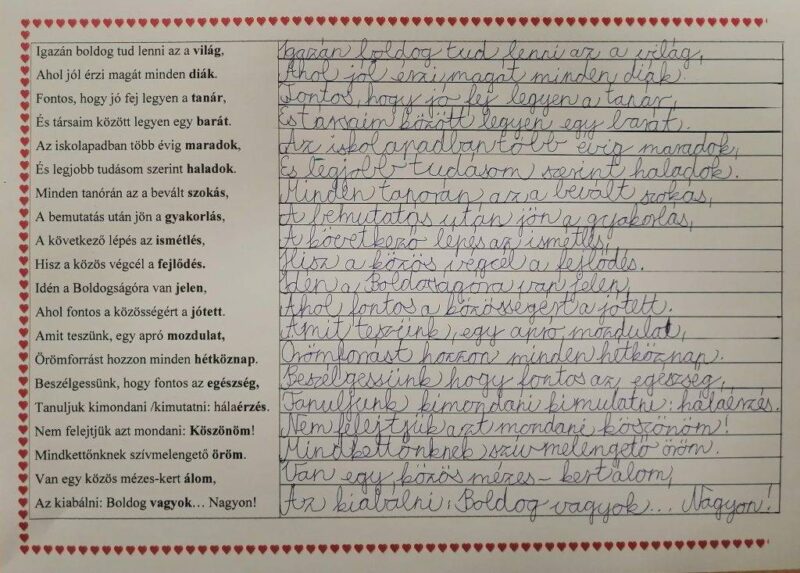 Igazán boldog tud lenni az a világ,
Igazán boldog tud lenni az a világ,
Ahol jól érzi magát minden diák.
Ahol jól érzi magát minden diák.
Fontos, hogy jó fej legyen a tanár,
Fontos, hogy jó fej legyen a tanár,
És társaim között legyen egy barát.
És társaim között legyen egy barát.
Az iskolapadban több évig maradok,
Az iskolapadban több évig maradok,
És legjobb tudásom szerint haladok.
És legjobb tudásom szerint haladok.
Minden tanórán az a bevált szokás,
Minden tanórán az a bevált szokás,
A bemutatás után jön a gyakorlás,
A bemutatás után jön a gyakorlás,
A következő lépés az ismétlés,
A következő lépés az ismétlés,
Hisz a közös végcél a fejlődés.
Hisz a közös végcél a fejlődés.
Idén a Boldogságóra van jelen,
Idén a Boldogságóra van jelen,
Ahol fontos a közösségért a jótett.
Ahol fontos a közösségért a jótett.
Amit teszünk, egy apró mozdulat,
Amit teszünk, egy apró mozdulat,
Örömforrást hozzon minden hétköznap.
Örömforrást hozzon minden hétköznap.
Beszélgessünk, hogy fontos az egészség,
Beszélgessünk hogy fontos az egészség,
Tanuljuk kimondani /kimutatni: hálaérzés.
Tanuljunk kimondani kimutatni: hálaérzés.
Nem felejtjük azt mondani: Köszönöm!
Nem felejtjük azt mondani köszönöm!
Mindkettőnknek szívmelengető öröm.
Mindkettőnknek szívmelengető öröm.
Van egy közös mézes-kert álom,
Van egy közös mézes-kert álom,
Az kiabálni: Boldog vagyok… Nagyon!
Az kiabálni: Boldog vagyok... Nagyon!